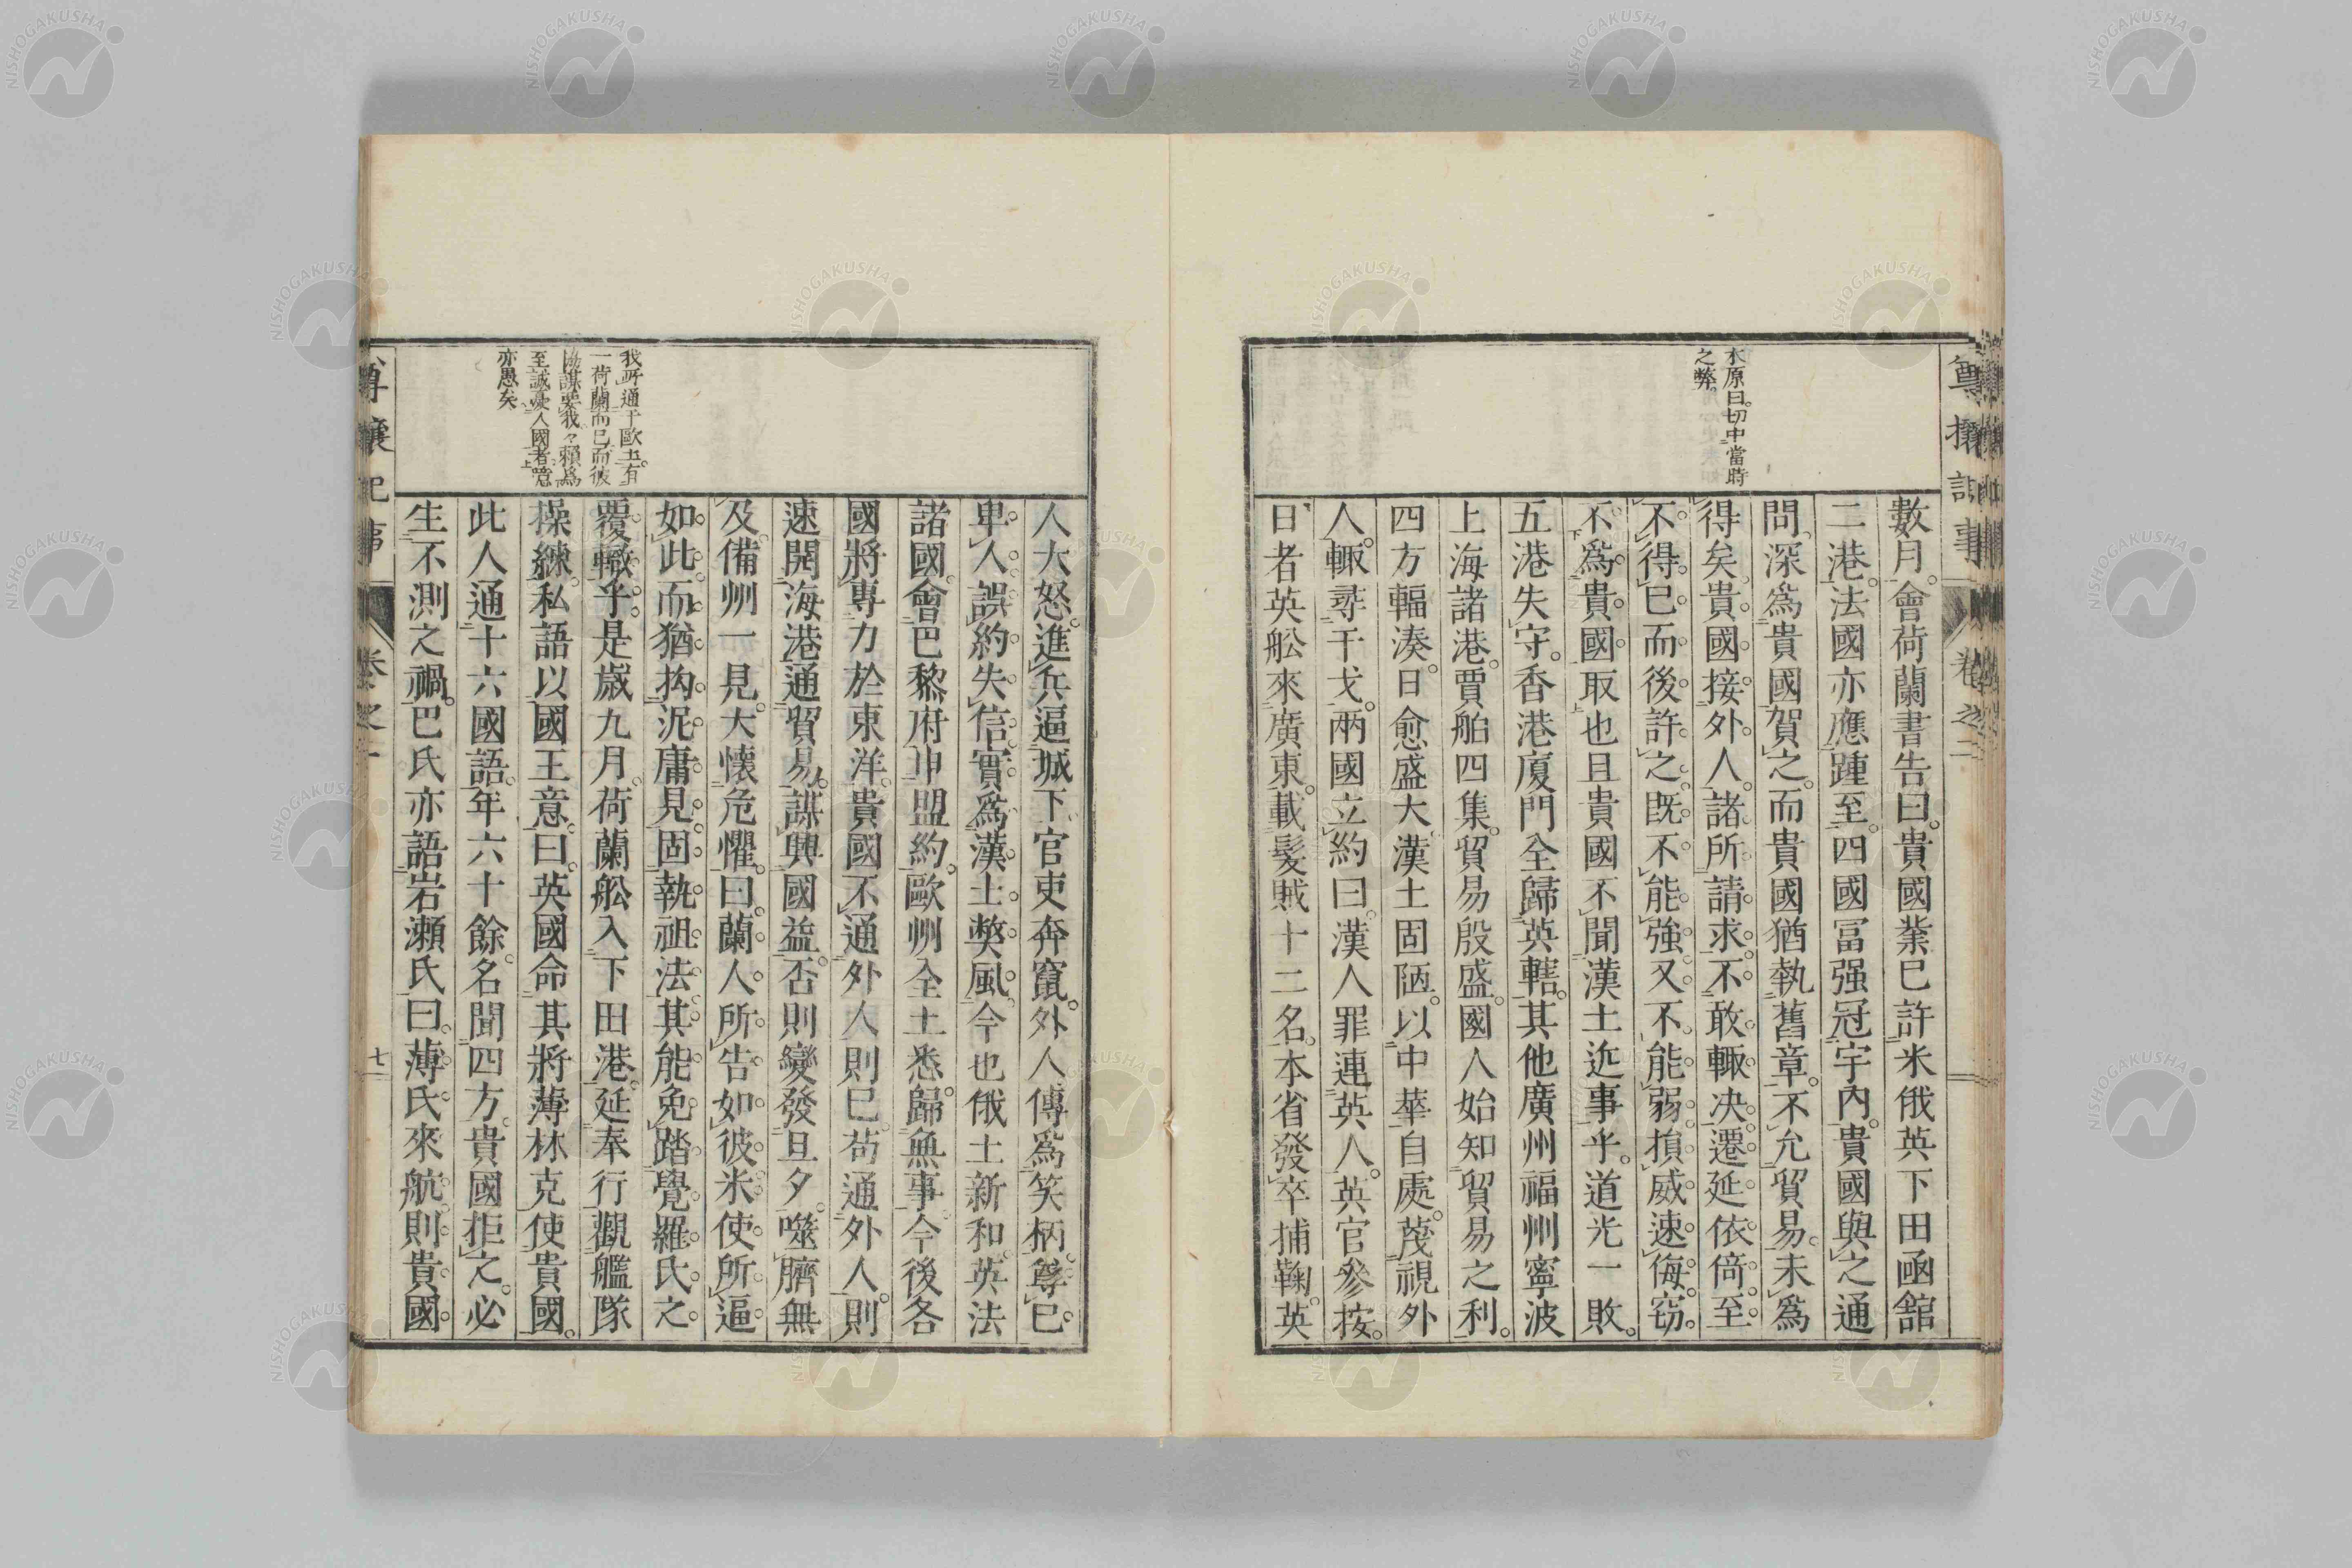 尊攘記事
卷之二
木原曰切中當時
之弊
數月會荷蘭書告曰貴國業已許米俄英下田凾館
二港法國亦應踵至四國冨强冠宇内貴國與之通
問深爲貴國賀之而貴國猶執舊章不允貿易未爲
得矣貴國接外人諸所請求不敢輙决遷延依倚至
不得已而後許之既不能強又不能弱損威速侮窃
不爲貴國取也且貴國不聞漢土近事乎道光一敗
五港失守香港廈門全歸英轄其他廣州福州寧波
上海諸港賈舶四集貿易殷盛國人始知貿易之利
四方輻湊日愈盛大漢土固陋以中華自處蔑視外
人輙尋干戈兩國立約曰漢人罪連英人英官參按
日者英舩來廣東載髮賊十二名本省發卒捕鞠英
人大怒進兵逼城下官吏奔竄外人傳爲笑柄尊已
卑人誤約失信實爲漢土獘風今也俄土新和英法
諸國會巴黎府申盟約歐州全土悉歸無事今後各
國將專力於東洋貴國不通外人則已苟通外人則
速開海港通貿易謀興國益否則變發旦夕噬臍無
及備州一見大懐危懼曰蘭人所告如彼米使所逼
如此而猶拘泥庸見固執祖法其能免踏覺羅氏之
覆轍乎是歳九月荷蘭舩入下田港延奉行觀艦隊
操練私語以國王意曰英國命其將薄林克使貴國
此人通十六國語年六十餘名聞四方貴國拒之必
生不測之禍巴氏亦語岩瀬氏曰薄氏來航則貴國
我所通于歐土有
一荷蘭而已而彼
陽謀要我々賴爲
至誠憂人國者
亦愚矣
尊攘記事
卷之二
七